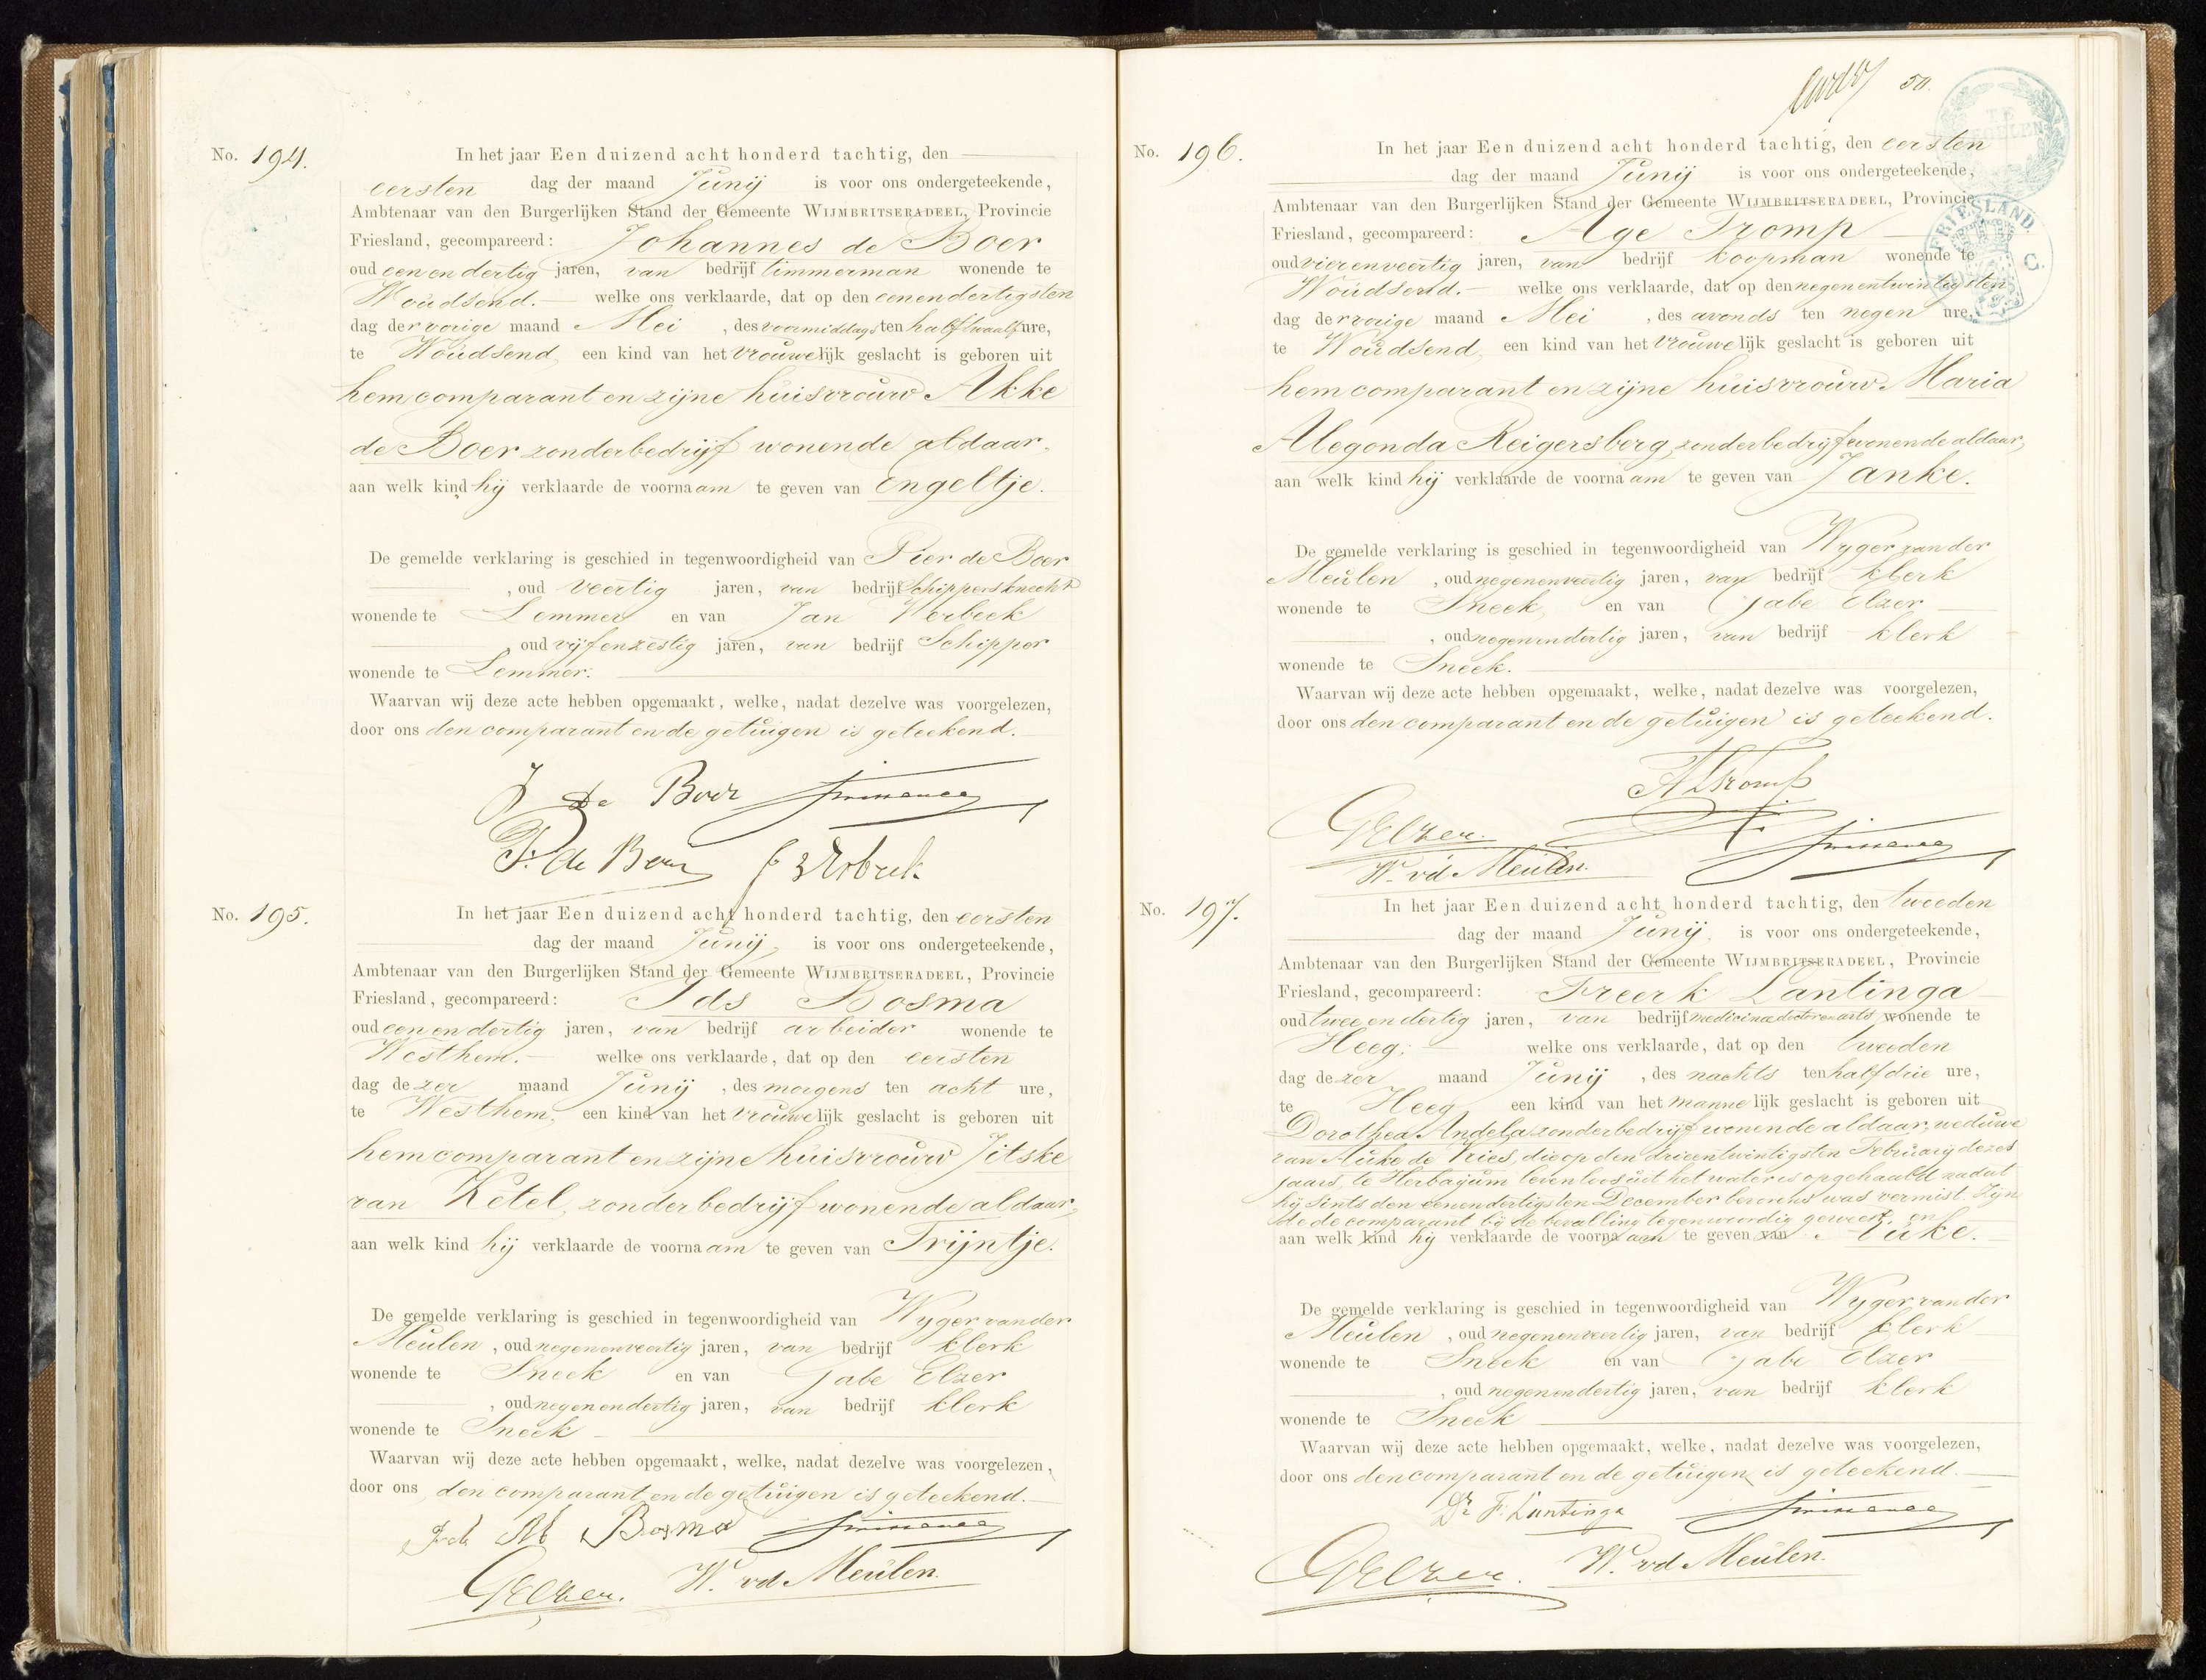 No. 194.
In het jaar Een duizend acht honderd tachtig, den
eersten dag der maand Junij is voor ons ondergeteekende,
Ambtenaar van den Burgerlijken Stand der Gemeente WIJMBRITSERADEEL, Provincie
Friesland, gecompareerd: Johannes de Boer
oud een en dertig jaren, van bedrijf timmerman wonende te
Woudsend. welke ons verklaarde, dat op den eenendertigsten
dag der vorige maand Mei, des voormiddags ten half twaalf ure,
te Woudsend, een kind van het vrouwelijk geslacht is geboren uit
hem comparant en zijne huisvrouw Akke
de Boer zonder bedrijf wonende aldaar.
aan welk kind hij verklaarde de voornaam te geven van Engeltje.
De gemelde verklaring is geschied in tegenwoordigheid van Pier de Boer
, oud veertig jaren, van bedrijf Schippersknecht
wonende te Lemmer en van Jan Verbeek
oud vijfenzestig jaren, van bedrijf Schipper
wonende te Lemmer.
Waarvan wij deze acte hebben opgemaakt, welke, nadat dezelve was voorgelezen,
door ons den comparant en de getuigen is geteekend.
J de Boer
P. de Boer J Verbeek
No. 195.
In het jaar Een duizend acht honderd tachtig, den eersten
dag der maand Junij, is voor ons ondergeteekende,
Ambtenaar van den Burgerlijken Stand der Gemeente WIJMBRITSERADEEL, Provincie
Friesland, gecompareerd: Ids Bosma
oud een en dertig jaren, van bedrijf arbeider wonende te
Westhem. welke ons verklaarde, dat op den eersten
dag dezer maand Junij, des morgens ten acht ure,
te Westhem, een kind van het vrouwelijk geslacht is geboren uit
hem comparant en zijne huisvrouw Jitske
van Ketel, zonder bedrijf wonende aldaar,
aan welk kind hij verklaarde de voornaam te geven van Trijntje.
De gemelde verklaring is geschied in tegenwoordigheid van Wyger van der
Meulen, oud negenenveertig jaren, van bedrijf klerk
wonende te Sneek en van Gabe Elzer
, oud negenendertig jaren, van bedrijf klerk
wonende te Sneek
Waarvan wij deze acte hebben opgemaakt, welke, nadat dezelve was voorgelezen,
door ons den comparant en de getuigen is geteekend.
Bosma
GElzer. W. vd Meulen.
50.
FRIESLAND
No. 196.
In het jaar Een duizend acht honderd tachtig, den eersten
dag der maand Junij is voor ons ondergeteekende,
Ambtenaar van den Burgerlijken Stand der Gemeente WIJMBRITSERADEEL, Provincie
Friesland, gecompareerd: Age Tromp
oud vierenveertig jaren, van bedrijf koopman wonende te
Woudsend. welke ons verklaarde, dat op den negenentwintigsten
dag der vorige maand Mei, des avonds ten negen ure,
te Woudsend, een kind van het vrouwelijk geslacht is geboren uit
hem comparant en zijne huisvrouw Maria
Alegonda Reigersberg, zonder bedrijf wonende aldaar,
aan welk kind hij verklaarde de voornaam te geven van Janke.
De gemelde verklaring is geschied in tegenwoordigheid van Wyger van der
Meulen, oud negenenveertig jaren, van bedrijf klerk
wonende te Sneek, en van Gabe Elzer
, oud negenendertig jaren, van bedrijf klerk
wonende te Sneek.
Waarvan wij deze acte hebben opgemaakt, welke, nadat dezelve was voorgelezen,
door ons den comparant en de getuigen is geteekend.
A Tromp
GElzer.
W. vd Meulen.
No. 197.
In het jaar Een duizend acht honderd tachtig, den tweeden
dag der maand Junij, is voor ons ondergeteekende,
Ambtenaar van den Burgerlijken Stand der Gemeente WIJMBRITSERADEEL, Provincie
Friesland, gecompareerd: Freerk Lantinga
oud twee en dertig jaren, van bedrijf medicinae doctor en arts wonende te
Heeg; welke ons verklaarde, dat op den tweeden
dag dezer maand Junij, des nachts ten half drie ure,
te Heeg een kind van het mannelijk geslacht is geboren uit
Dorothea Andela zonder bedrijf wonende aldaar, weduwe
van Auke de Vries, die op den drieentwintigsten Februarij dezes
jaars, te Herbayum levenloos uit het water is opgehaald nadat
hij sints den eenendertigsten December bevorens was vermist. Zijn
de de comparant bij de bevalling tegenwoordig geweest, en
aan welk kind hij verklaarde de voornaam te geven van Auke.
De gemelde verklaring is geschied in tegenwoordigheid van Wyger van der
Meulen, oud negenenveertig jaren, van bedrijf klerk
wonende te Sneek en van Gabe Elzer
, oud negenendertig jaren, van bedrijf klerk
wonende te Sneek
Waarvan wij deze acte hebben opgemaakt, welke, nadat dezelve was voorgelezen,
door ons den comparant en de getuigen is geteekend.
Dr F. Lantinga
GElzer. W. vd Meulen.